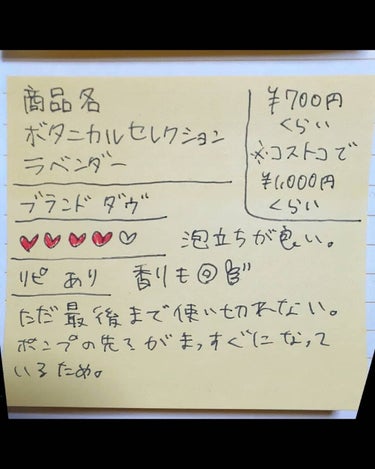 商品名
ボタニカルセレクション
ラベンダー
¥700円
くらい
※コストコで
¥1,000円
くらい
ブランド ダヴ
泡立ちが良い。
リピ あり 香りも◎
ただ最後まで使い切れない。
ポンプの先がまっすぐになって
いるため。